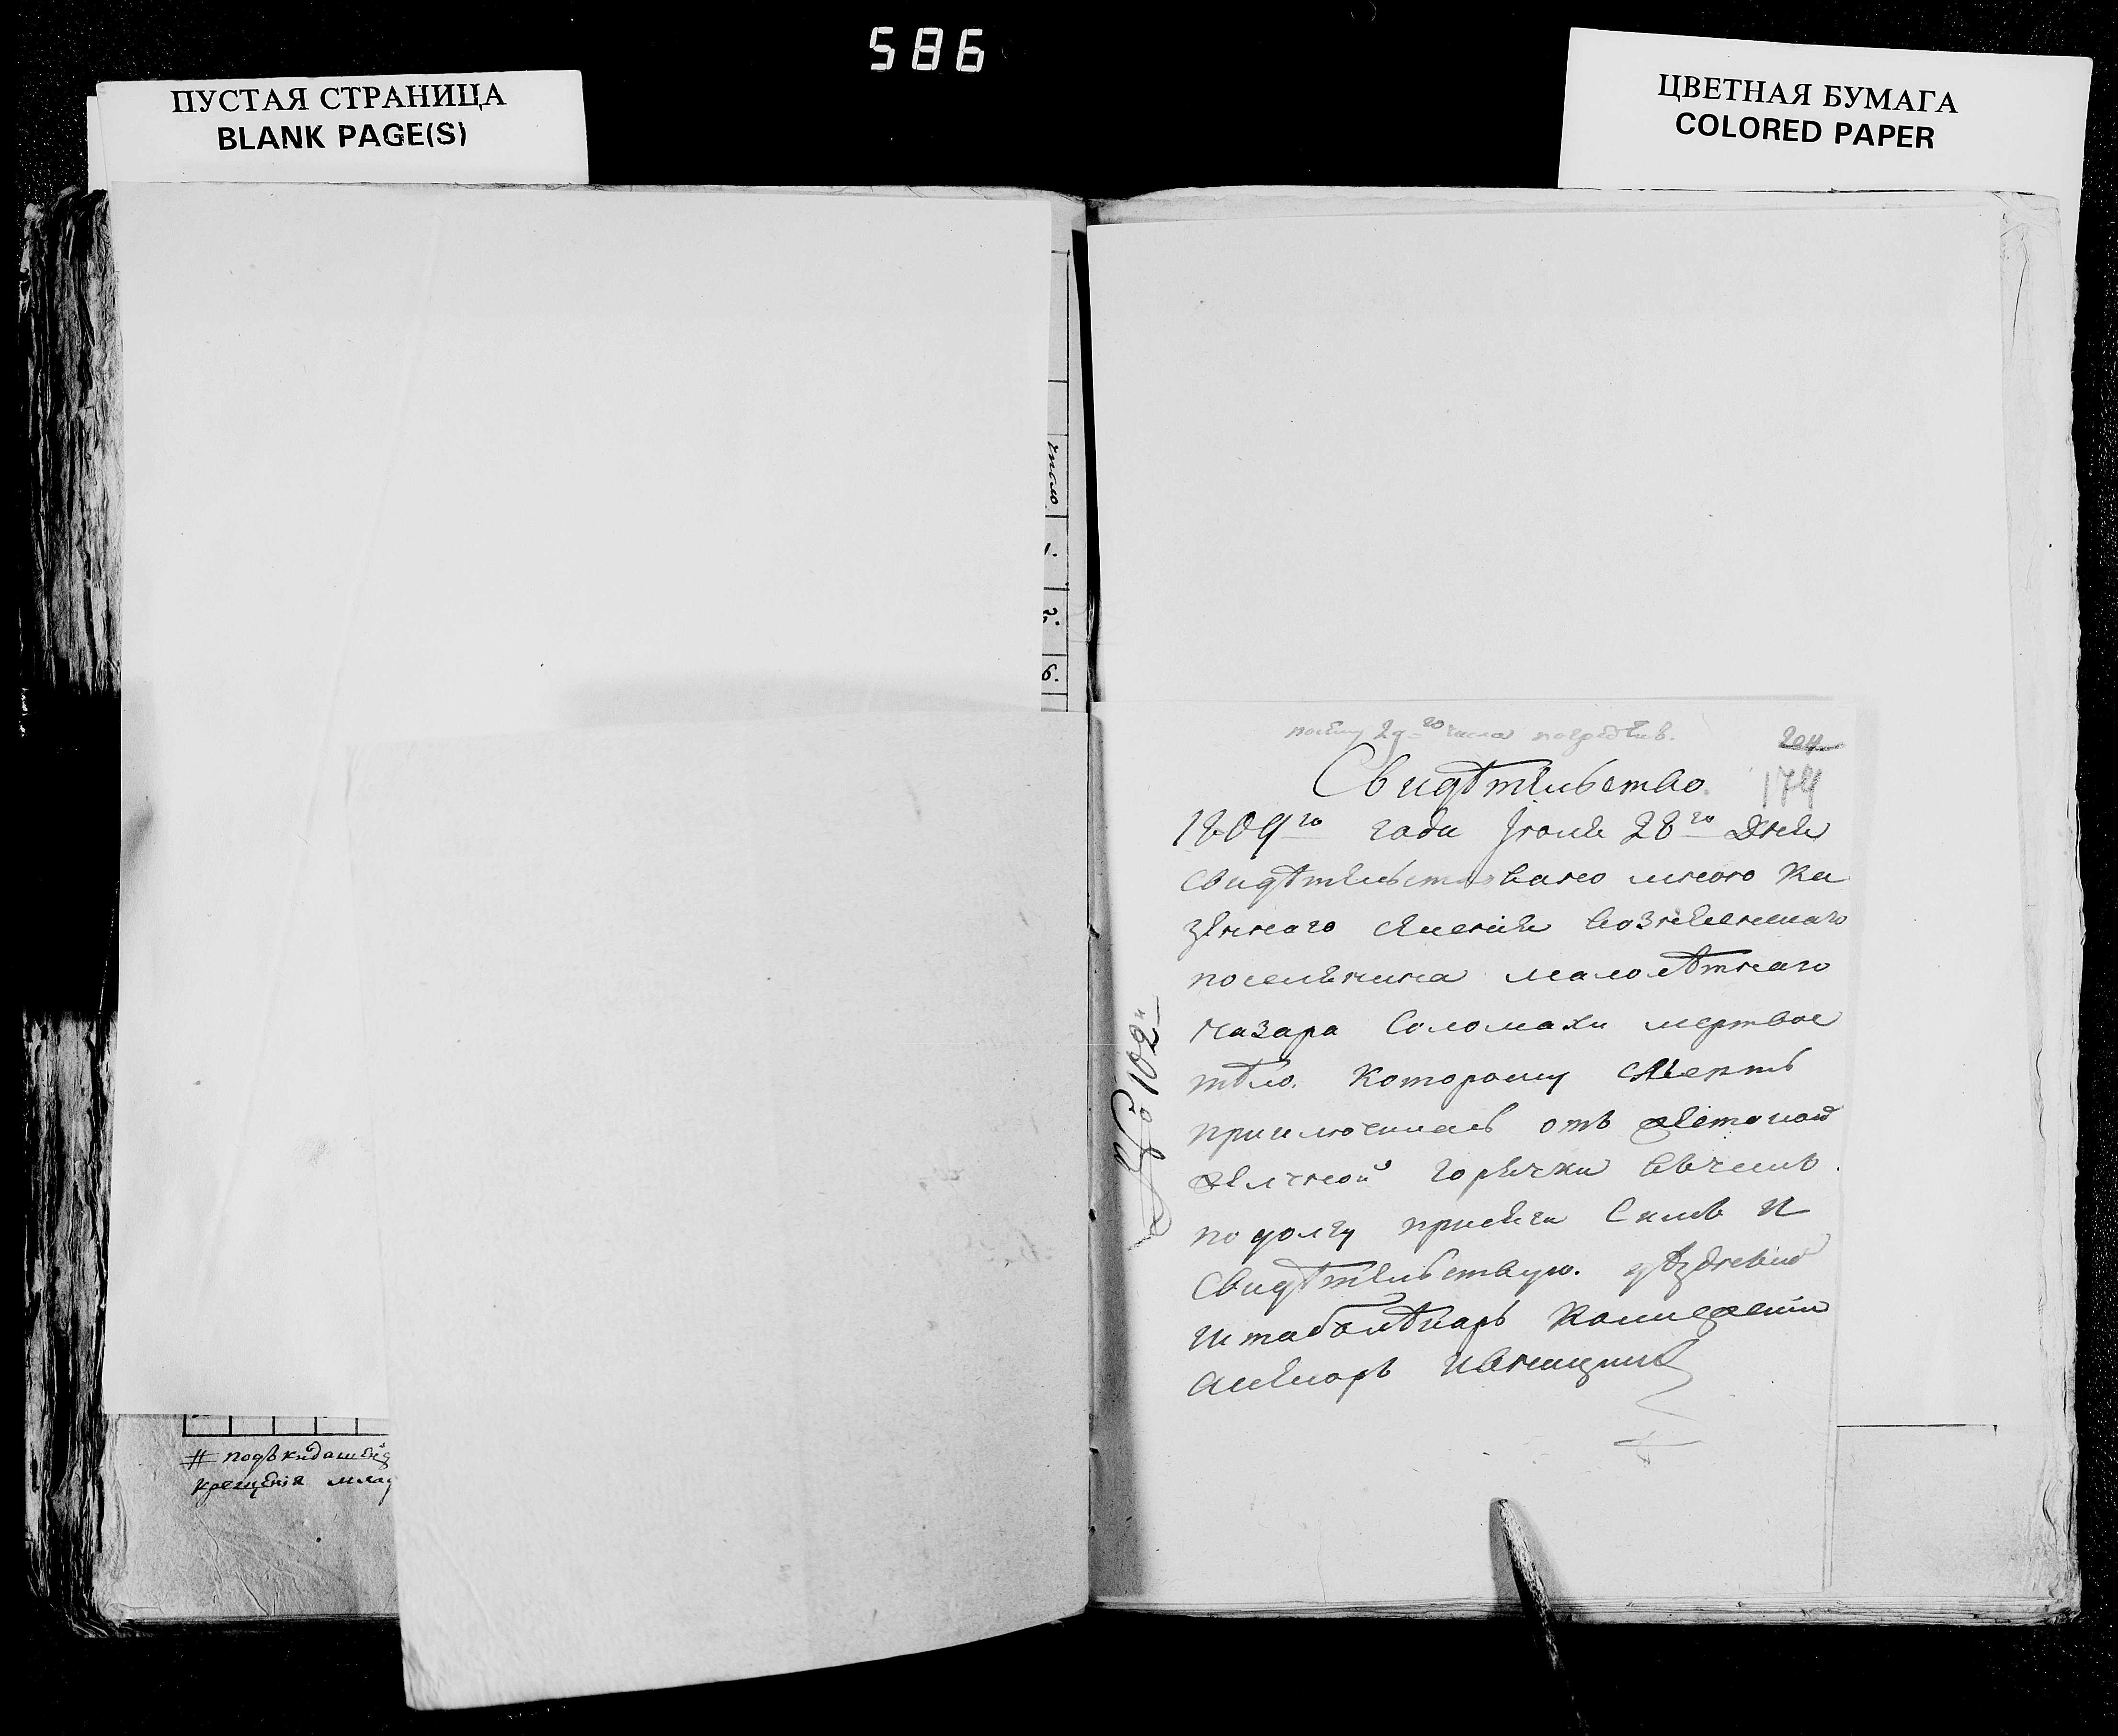 586
ПУСТАЯ СТРАНИЦА
BLANK PAGE(S)
ЦВЕТНАЯ БУМАГА
COLORED PAPER
число
1.
5.
6.
# подъкидашъ
крещенія млад
посему 29-го числа погребенъ.
204
174
Свидѣтельство.
1809го года Іюня 28го дня
свидѣтельствовано мною ка
зеннаго имения
поселенина малолѣтнаго
Назара Соломахи мертвое
тѣло. которому смерть
приключилась отъ
желчной горячки въ чемъ
по долгу присяги симъ и
свидѣтельствую. уѣздный
штаболѣкарь
№ 102й